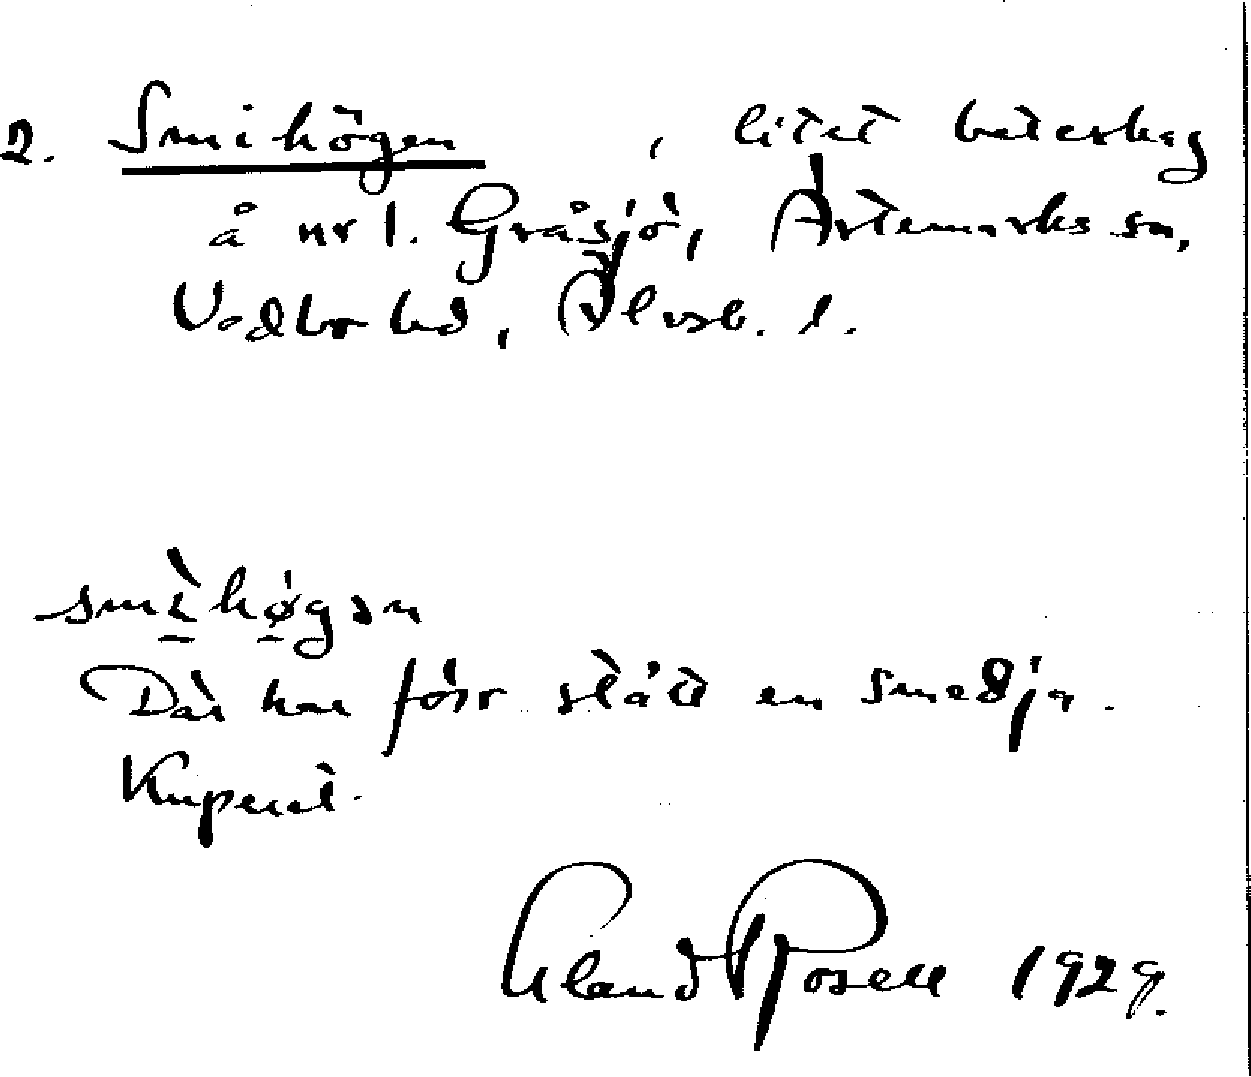 2. Smihögen, litet beteshag
å nr 1. Gråsjö, Ärtemarks sn,
Vedbo hd, Älvsb. l.
smìhøgən
Där har förr stått en smedja.
Kuperat.
Erland Rosell 1929.